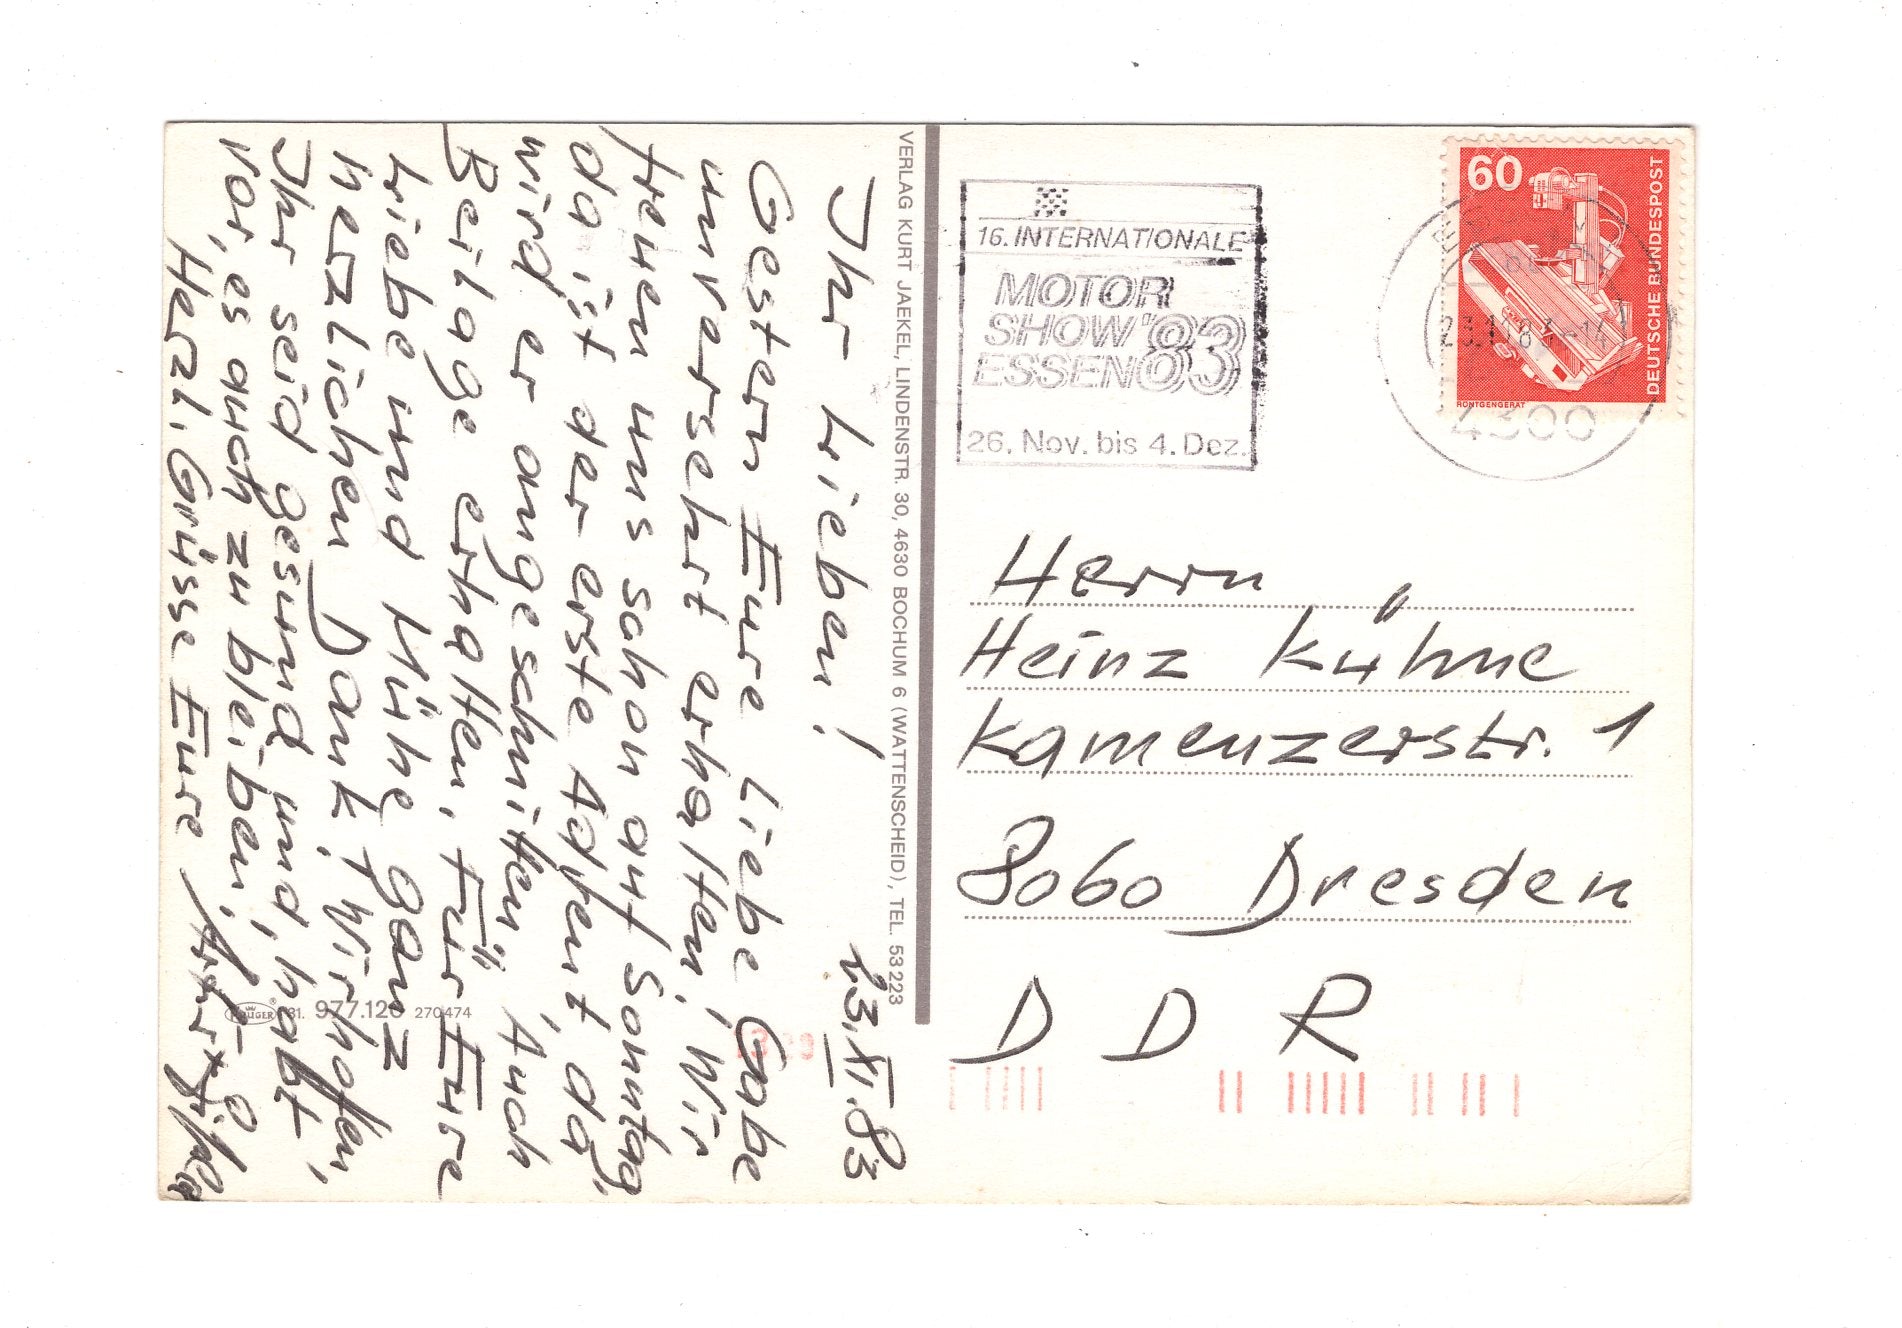 Ihr Lieben!
23.XI.83
Gestern Eure Liebe Gabe
unversehrt erhalten! Wir
freuen uns schon auf Sonntag,
da ist der erste Advent, da
wird er angeschnitten! Auch
Beilage erhalten, Für Eure
Liebe und Mühe ganz
herzlichen Dank! Wir hoffen,
Ihr seid gesund und habt
vor, es auch zu bleiben!
Herzl. Grüsse Eure
VERLAG KURT JAEKEL, LINDENSTR. 30, 4630 BOCHUM 6 (WATTENSCHEID), TEL. 53 223
KRÜGER
977.126 270474
16. INTERNATIONALE
MOTOR
SHOW '83
ESSEN
26. Nov. bis 4. Dez.
60
DEUTSCHE BUNDESPOST
RÖNTGENGERÄT
23.11.83-14
4300
Herrn
Heinz Kühne
Kamenzerstr. 1
8060 Dresden
D D R